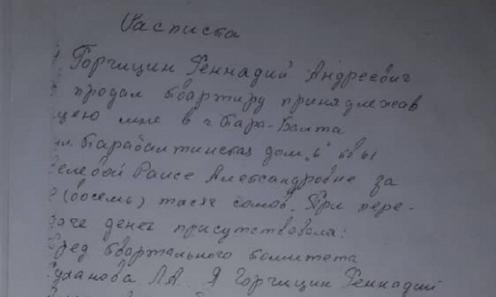 Расписта
Горчицин Геннадий Андреевич
продал квартиру принядлежав
щею мне в г Кара-Балта
Карабалтинская дом „6“
Раисе Александровне за
(восемь) тысяч сомов. При пере-
даче денег присутствовала:
пред квартального комитета
Л.А. Я Горчицин Геннадий